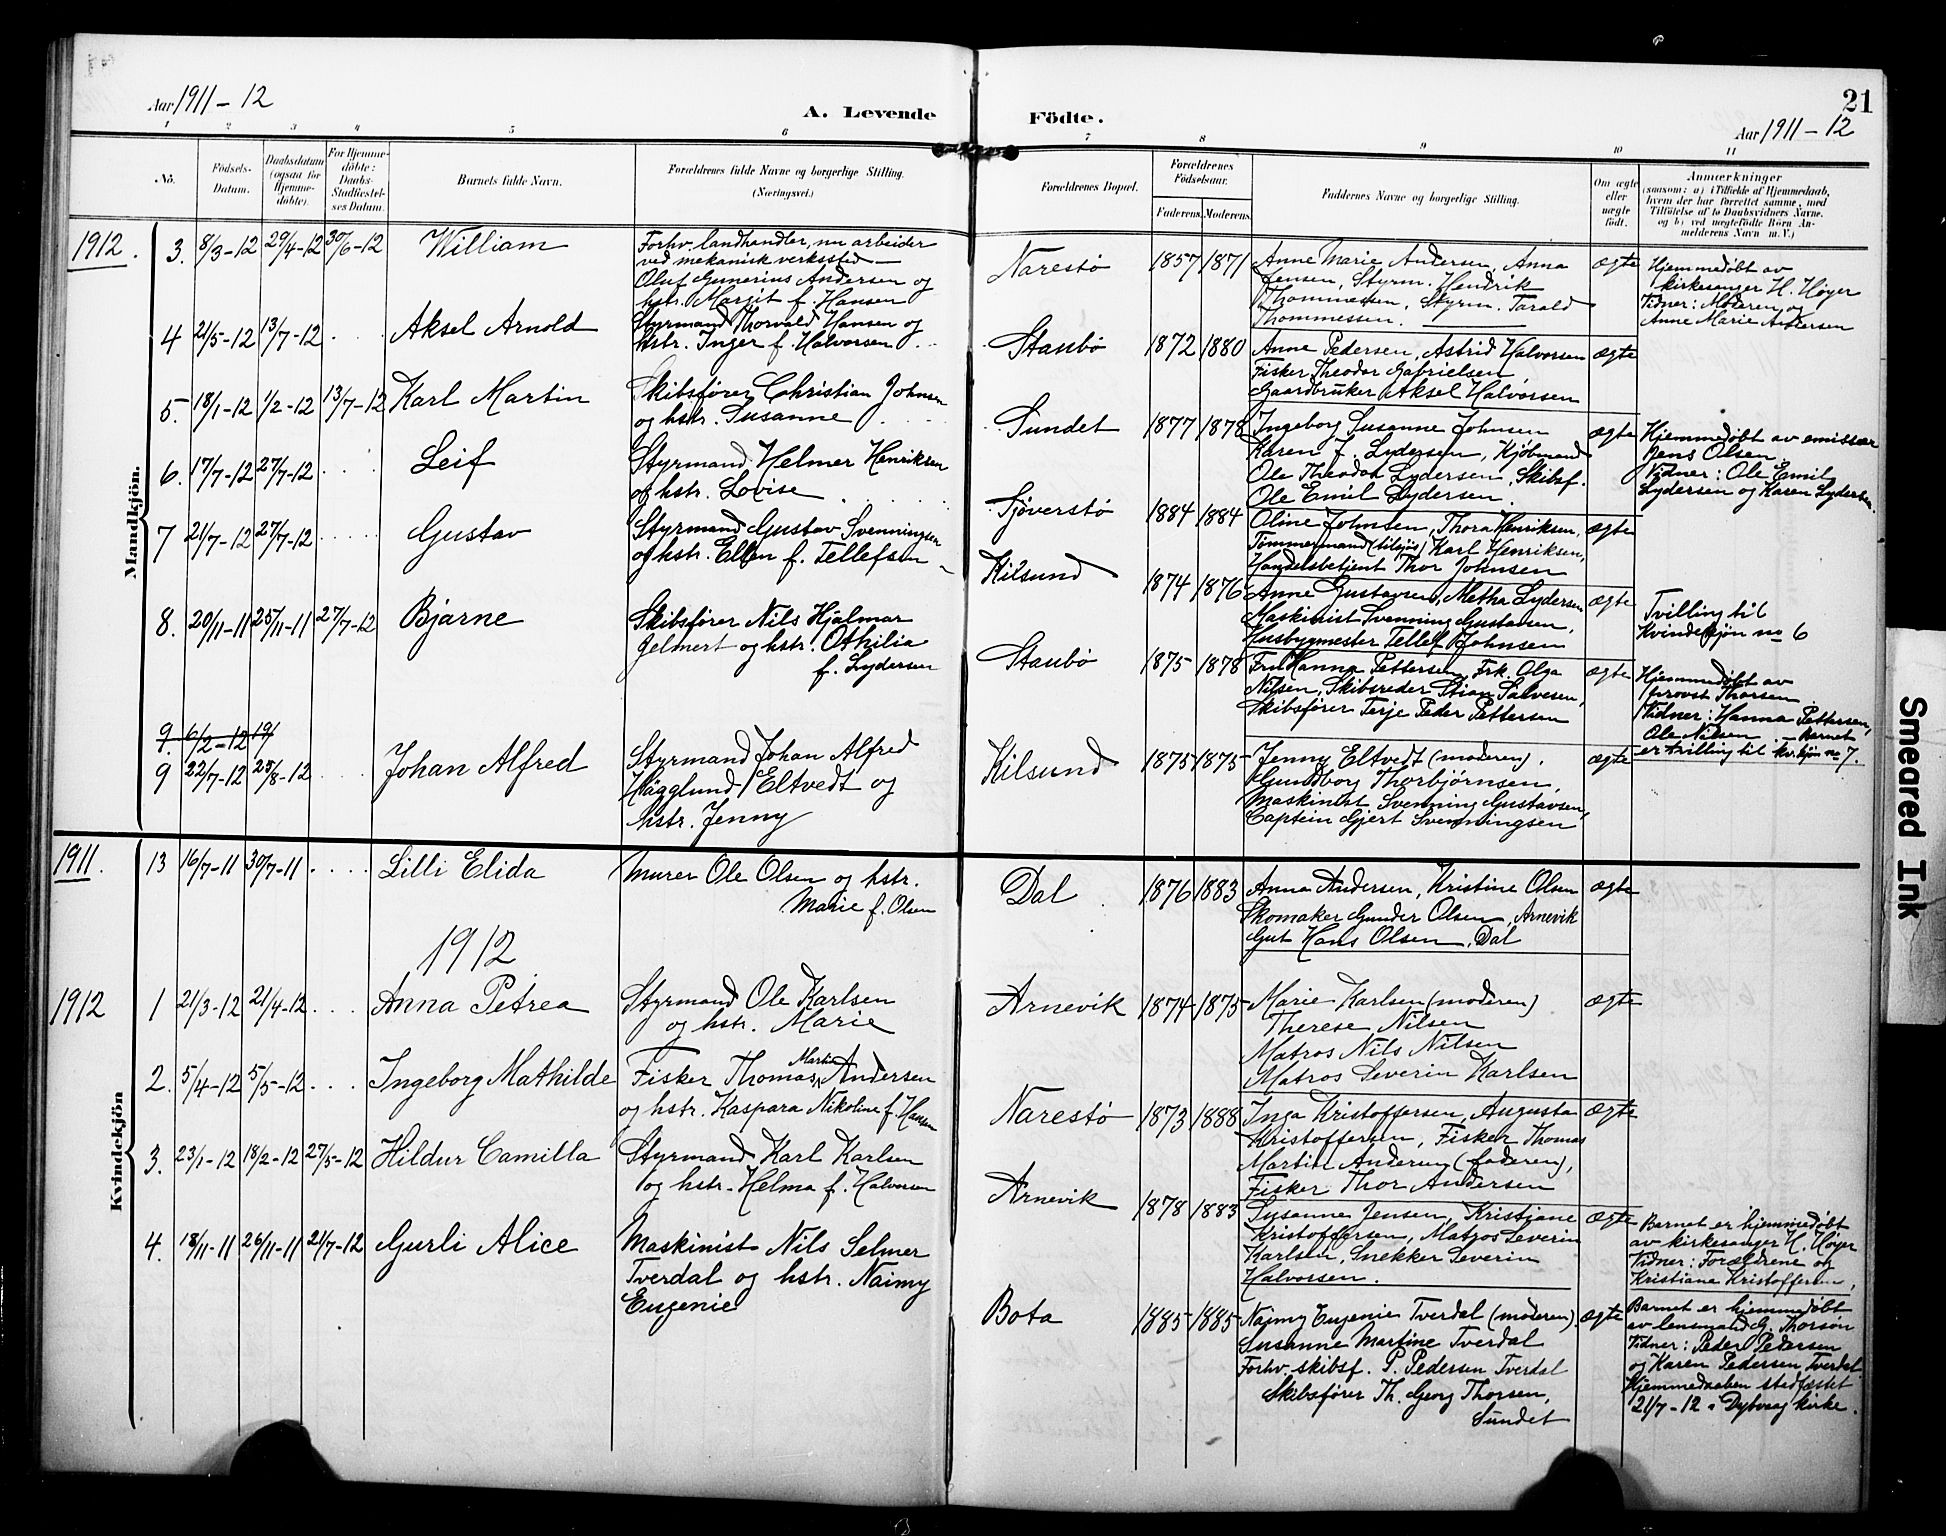 21
Aar 1911-12
A. Levende
Födte.
Aar 1911-12
1 2 3 4 5 6 7 8 9 10 11
No.
Födsels-
Datum.
Daabsdatum
(ogsaa for
Hjemme-
döbte).
For Hjemme-
döbte:
Daabs-
Stadfæstel-
ses Datum.
Barnets fulde Navn.
Forældrenes fulde Navne og borgerlige Stilling.
(Næringsvei.)
Forældrenes Bopæl.
Forældrenes
Födselsaar.
Faderens. Moderens.
Faddernes Navne og borgerlige Stilling.
Om ægte
eller
uægte
födt.
Anmærkninger
(saasom: a) i Tilfælde af Hjemmedaab,
hvem der har forrettet samme, med
Tilföielse af to Daabsvidners Navne.
og b) ved uægtefödte Börn An-
melderens Navn m. V.)
Mandkjön.
1912. 3. 8/3-12 29/4-12 30/6-12 William
Forhv. landhandler, nu arbeider
ved mekanisk verksted
Oluf Gunerius Andersen og
hstr. Margit f. Hansen
Narestø 1857 1871
Anne Marie Andersen, Anna
Jensen, Styrm. Hendrik
Thommessen, Styrm. Tarald
Thommessen.
ægte
Hjemmedøbt av
kirkesanger H. Høyer
Vidner: Moderen og
Anne Marie Andersen
4 21/5-12 13/7-12 Aksel Arnold
Styrmand Thorvald Hansen og
hstr. Inger f. Halvorsen
Staubø 1872 1880
Anne Pedersen, Astrid Halvorsen
Fisker Theodor Gabrielsen,
Gaardbruker Aksel Halvorsen
ægte
5. 18/1-12 1/2-12 13/7-12 Karl Martin
Skibsfører Christian Johnsen
og hstr. Susanne
Sundet 1877 1878
Ingeborg Susanne Johnsen
Karen f. Lydersen, Kjøbmand
Ole Theodor Lydersen, Skibsf.
Ole Emil Lydersen.
ægte
Hjemmedøbt av emissær
Jens Olsen.
Vidner: Ole Emil
Lydersen og Karen Lydersen.
6. 17/7-12 27/7-12 Leif
Styrmand Helmer Henriksen
og hstr. Lovise
Sjøverstø 1884 1884
Oline Johnsen, Thora Henriksen,
Tømmermand (tilsjøs) Karl Henriksen,
Handelsbetjent Thor Johnsen
ægte
7 21/7-12 27/7-12 Gustav
Styrmand Gustav Svenningsen
og hstr. Ellen f. Tellefsen
Kilsund 1874 1876
Anne Gustavsen, Metha Lydersen
Maskinist Svenning Gustavsen,
Husbygmester Tellef Johnsen
ægte
Tvilling til
Kvindekjøn no 6
8. 20/11-11 25/11-11 27/7-12 Bjarne
Skibsfører Nils Hjalmar
Gelmert og hstr. Othilia
f. Lydersen
Staubø 1875 1878
Fru Hanna Pettersen, Frk. Olga
Nilsen, Skibsreder Stian Salvesen,
Skibsfører Terje Peder Pettersen
ægte
Hjemmedøbt av
provst Thorsen
Vidner: Hanna Pettersen,
Ole Nilsen. - Barnet
er tvilling til kv.kjøn no 7.
9. 6/2-12 19/
9 22/7-12 25/8-12 Johan Alfred
Styrmand Johan Alfred
Hägglund Eltvedt og
hstr. Jenny
Kilsund 1875 1875
Jenny Eltvedt (moderen),
Gundborg Thorbjørnsen,
Maskinist Svenning Gustavsen,
Captein Gjert Svenningsen
ægte
Kvindekjön
1911. 13 16/7-11 30/7-11 Lilli Elida
Murer Ole Olsen og hstr.
Marie f. Olsen
Dal 1876 1883
Anna Andersen, Kristine Olsen
Skomaker Gunder Olsen, Arnevik
Gut Hans Olsen, Dal
ægte
1912
1912 1 21/3-12 21/4-12 Anna Petrea
Styrmand Ole Karlsen
og hstr. Marie
Arnevik 1874 1875
Marie Karlsen (moderen)
Therese Nilsen
Matros Nils Nilsen
Matros Severin Karlsen
ægte
2. 5/4-12 5/5-12 Ingeborg Mathilde
Fisker Thomas Martin Andersen
og hstr. Kaspara Nikoline f. Hansen
Narestø 1873 1888
Inga Kristoffersen, Augusta
Kristoffersen, Fisker Thomas
Martin Andersen (faderen),
Fisker Thor Andersen
ægte
3. 23/1-12 18/2-12 27/5-12 Hildur Camilla
Styrmand Karl Karlsen
og hstr. Helma f. Halvorsen
Arnevik 1878 1883
Susanne Jensen, Kristiane
Kristoffersen, Matros Severin
Karlsen, Snekker Severin
Halvorsen.
ægte
Barnet er hjemmedøbt
av kirkesanger H. Høyer
Vidner: Forældrene og
Kristiane Kristoffersen,
4. 18/11-11 26/11-11 21/7-12 Gurli Alice
Maskinist Nils Selmer
Tverdal og hstr. Naimy
Eugenie
Bota 1885 1885
Naimy Eugenie Tverdal (moderen).
Susanne Martine Tverdal
Forhv. skibsf. P. Pedersen Tverdal
Skibsfører Th. Georg Thorsen,
Sundet
ægte
Barnet er hjemmedøbt
av lensmand G. Thorsøn
Vidner: Peder Pedersen
og Karen Pedersen Tverdal.
Hjemmedaaben stadfæstet
21/7-12 i Dybvaag kirke.
Smeared Ink